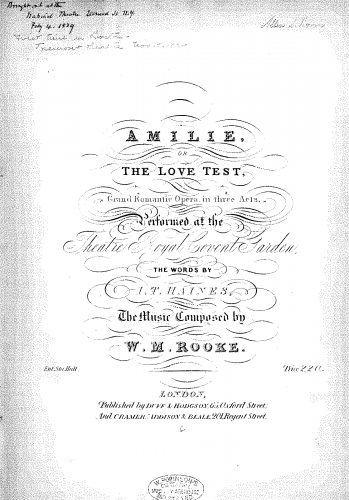 Bought at the
National Theatre Leonard St N.Y.
Feb 4. 1839
First time in
Tremont Nov.
AMILIE,
OR
THE LOVE TEST,
Grand Romantic Opera, in three Acts,
Performed at the
Theatre Royal Covent Garden,
THE WORDS BY
I. T. HAINES,
The Music Composed by
W. M. ROOKE.
Ent. Sta. Hall.
Price
LONDON,
Published by DUFF & HODGSON, 65, Oxford Street,
And CRAMER, ADDISON & BEALE, 201, Regent Street.